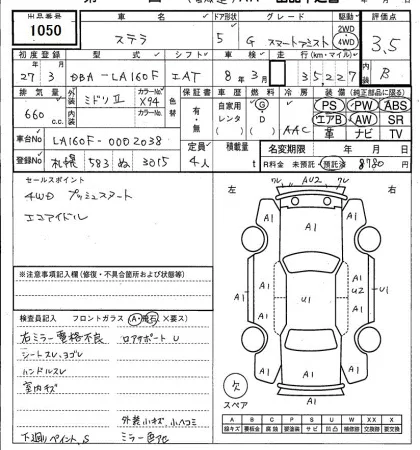 出品番号 車名 ドア形状 グレード 駆動 評価点
1050 ステラ 5 G スマートアシスト 2WD 4WD 3.5
初度登録 型式 シフト 車検 走行(km・マイル) 内装
27年3月 DBA-LA160F IAT 8年3月 35,227 B
排気量 外装 カラーNo. 色替 保証書 車歴 燃料 冷房 装備(純正部品に限る)
660c.c. ミドリII X94 有・無 自家用 レンタ G D AAC PS PW ABS
内装 カラーNo. エアB AW SR
革 ナビ TV
車台No LA160F-0002038
定員 積載量 名変期限 年 月 日
登録No 札幌 583 ぬ 3015 4人 t R料金 未預託・預託済 8780
セールスポイント
4WD プッシュスタート
エコアイドル
左 右
ワレ AU2 ワレ
A1 A1
A1 A1
A1 U1 U2 A1 U1
A1 A1
A1
※注意事項記入欄(修復・不具合箇所および状態等)
検査員記入 フロントガラス (A・飛石 X要ス)
右ミラー電格不良 ロアサポート U
シートスレ、ヨゴレ
ハンドルスレ
室内キズ
外装 小キズ 小ヘコミ
下廻りペイント、S ミラー色アセ
欠
スペア
A B C P S U W X XX X
線キズ 要板金 腐食 要塗装 サビ 凹凸 補修跡 交換跡 要交換